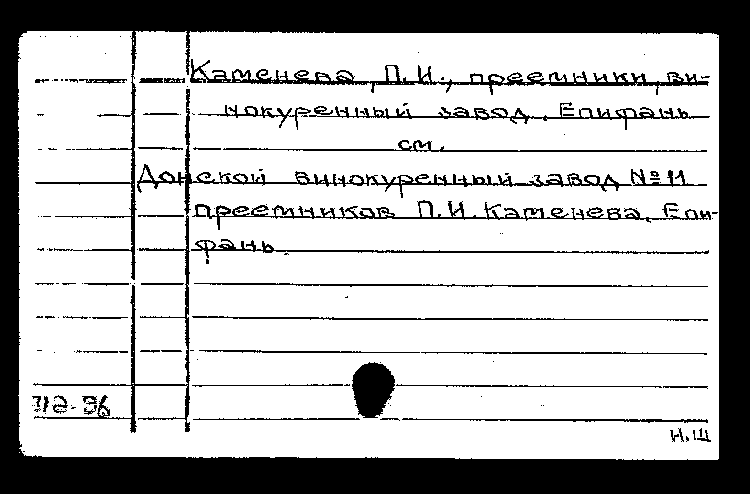 Каменева, П.И., преемники, ви-
нокуренный завод. Епифань
см.
Донской винокуренный завод №11
преемников П.И. Каменева. Епи-
фань.
Н.Ш